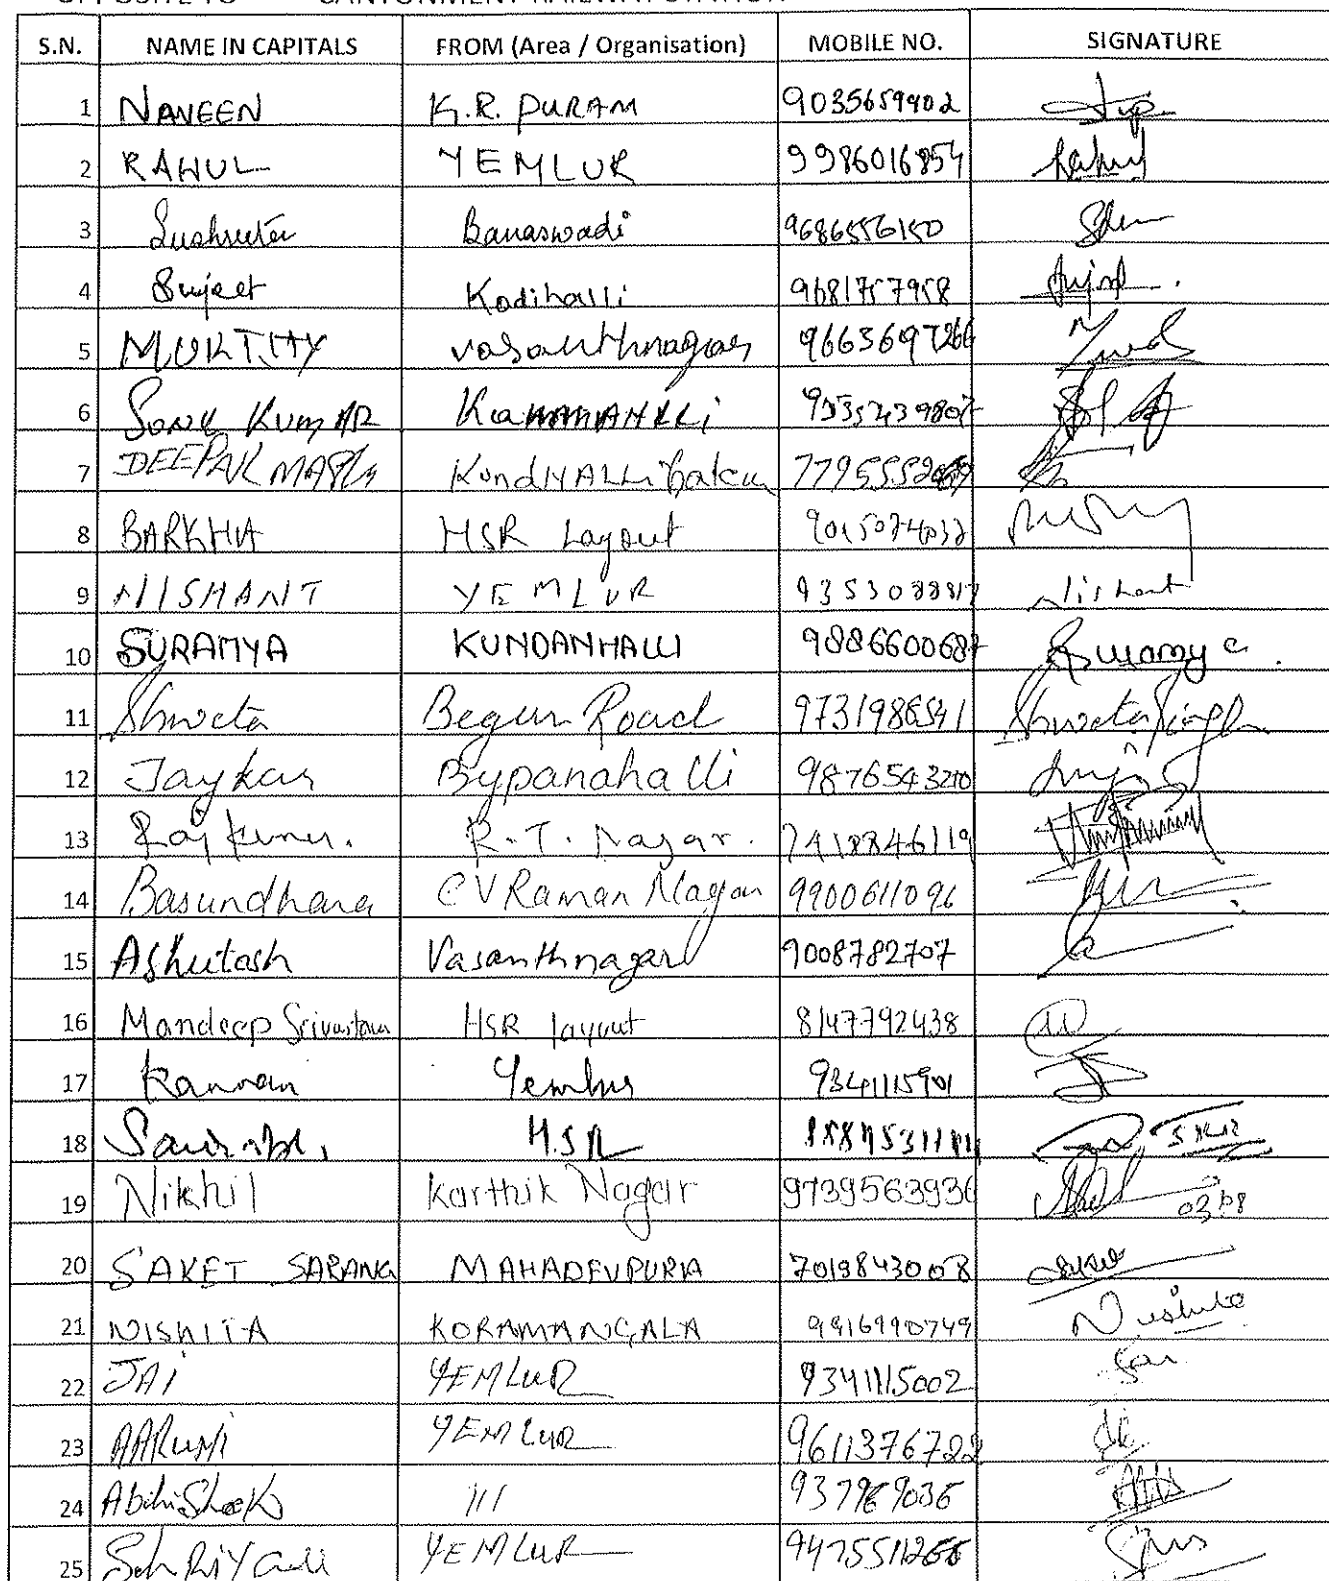 OPPOSITE TO CANTONMENT RAILWAY STATION
S.N. NAME IN CAPITALS FROM (Area / Organisation) MOBILE NO. SIGNATURE
1 NAVEEN K.R. PURAM 9035659902
2 RAHUL YEMLUR 9986016854 Rahul
3 Sushruta Banaswadi 9686556150
4 Sujeet Kodihalli 9681757958 Sujeet
5 MURTHY vasanthnagar 9663697266
6 SONU KUMAR Kammanhlli
7 DEEPAK KundHALLi
8 BARKHA HSR Layout
9 NISHANT YEMLUR Nishant
10 SURAMYA KUNDANHALLI 9886600687 Suramya
11 Shweta Begur Road 9731986541 Shweta Singh
12 Jaykar Bypanahalli 9876543210
13 Rajkumar. R.T. Nagar.
14 Basundhara CV Raman Nagar 9900611096
15 Ashutosh Vasanthnagar 9008782707
16 Mandeep Srivastava HSR layout 8147792438
17 Kannan Yemlur 9341115901
18 H.S.R
19 Nikhil Karthik Nagar 9739563936
20 SAKET SARANG MAHADEVPURA 7019843008 Saket
21 NISHITA KORAMANGALA 9916990749 Nishita
22 JAI YEMLUR 9341115002 Jai
23 AARUSHI YEMLUR 9611376722
24 Abihishek 111 937969036
25 YEMLUR